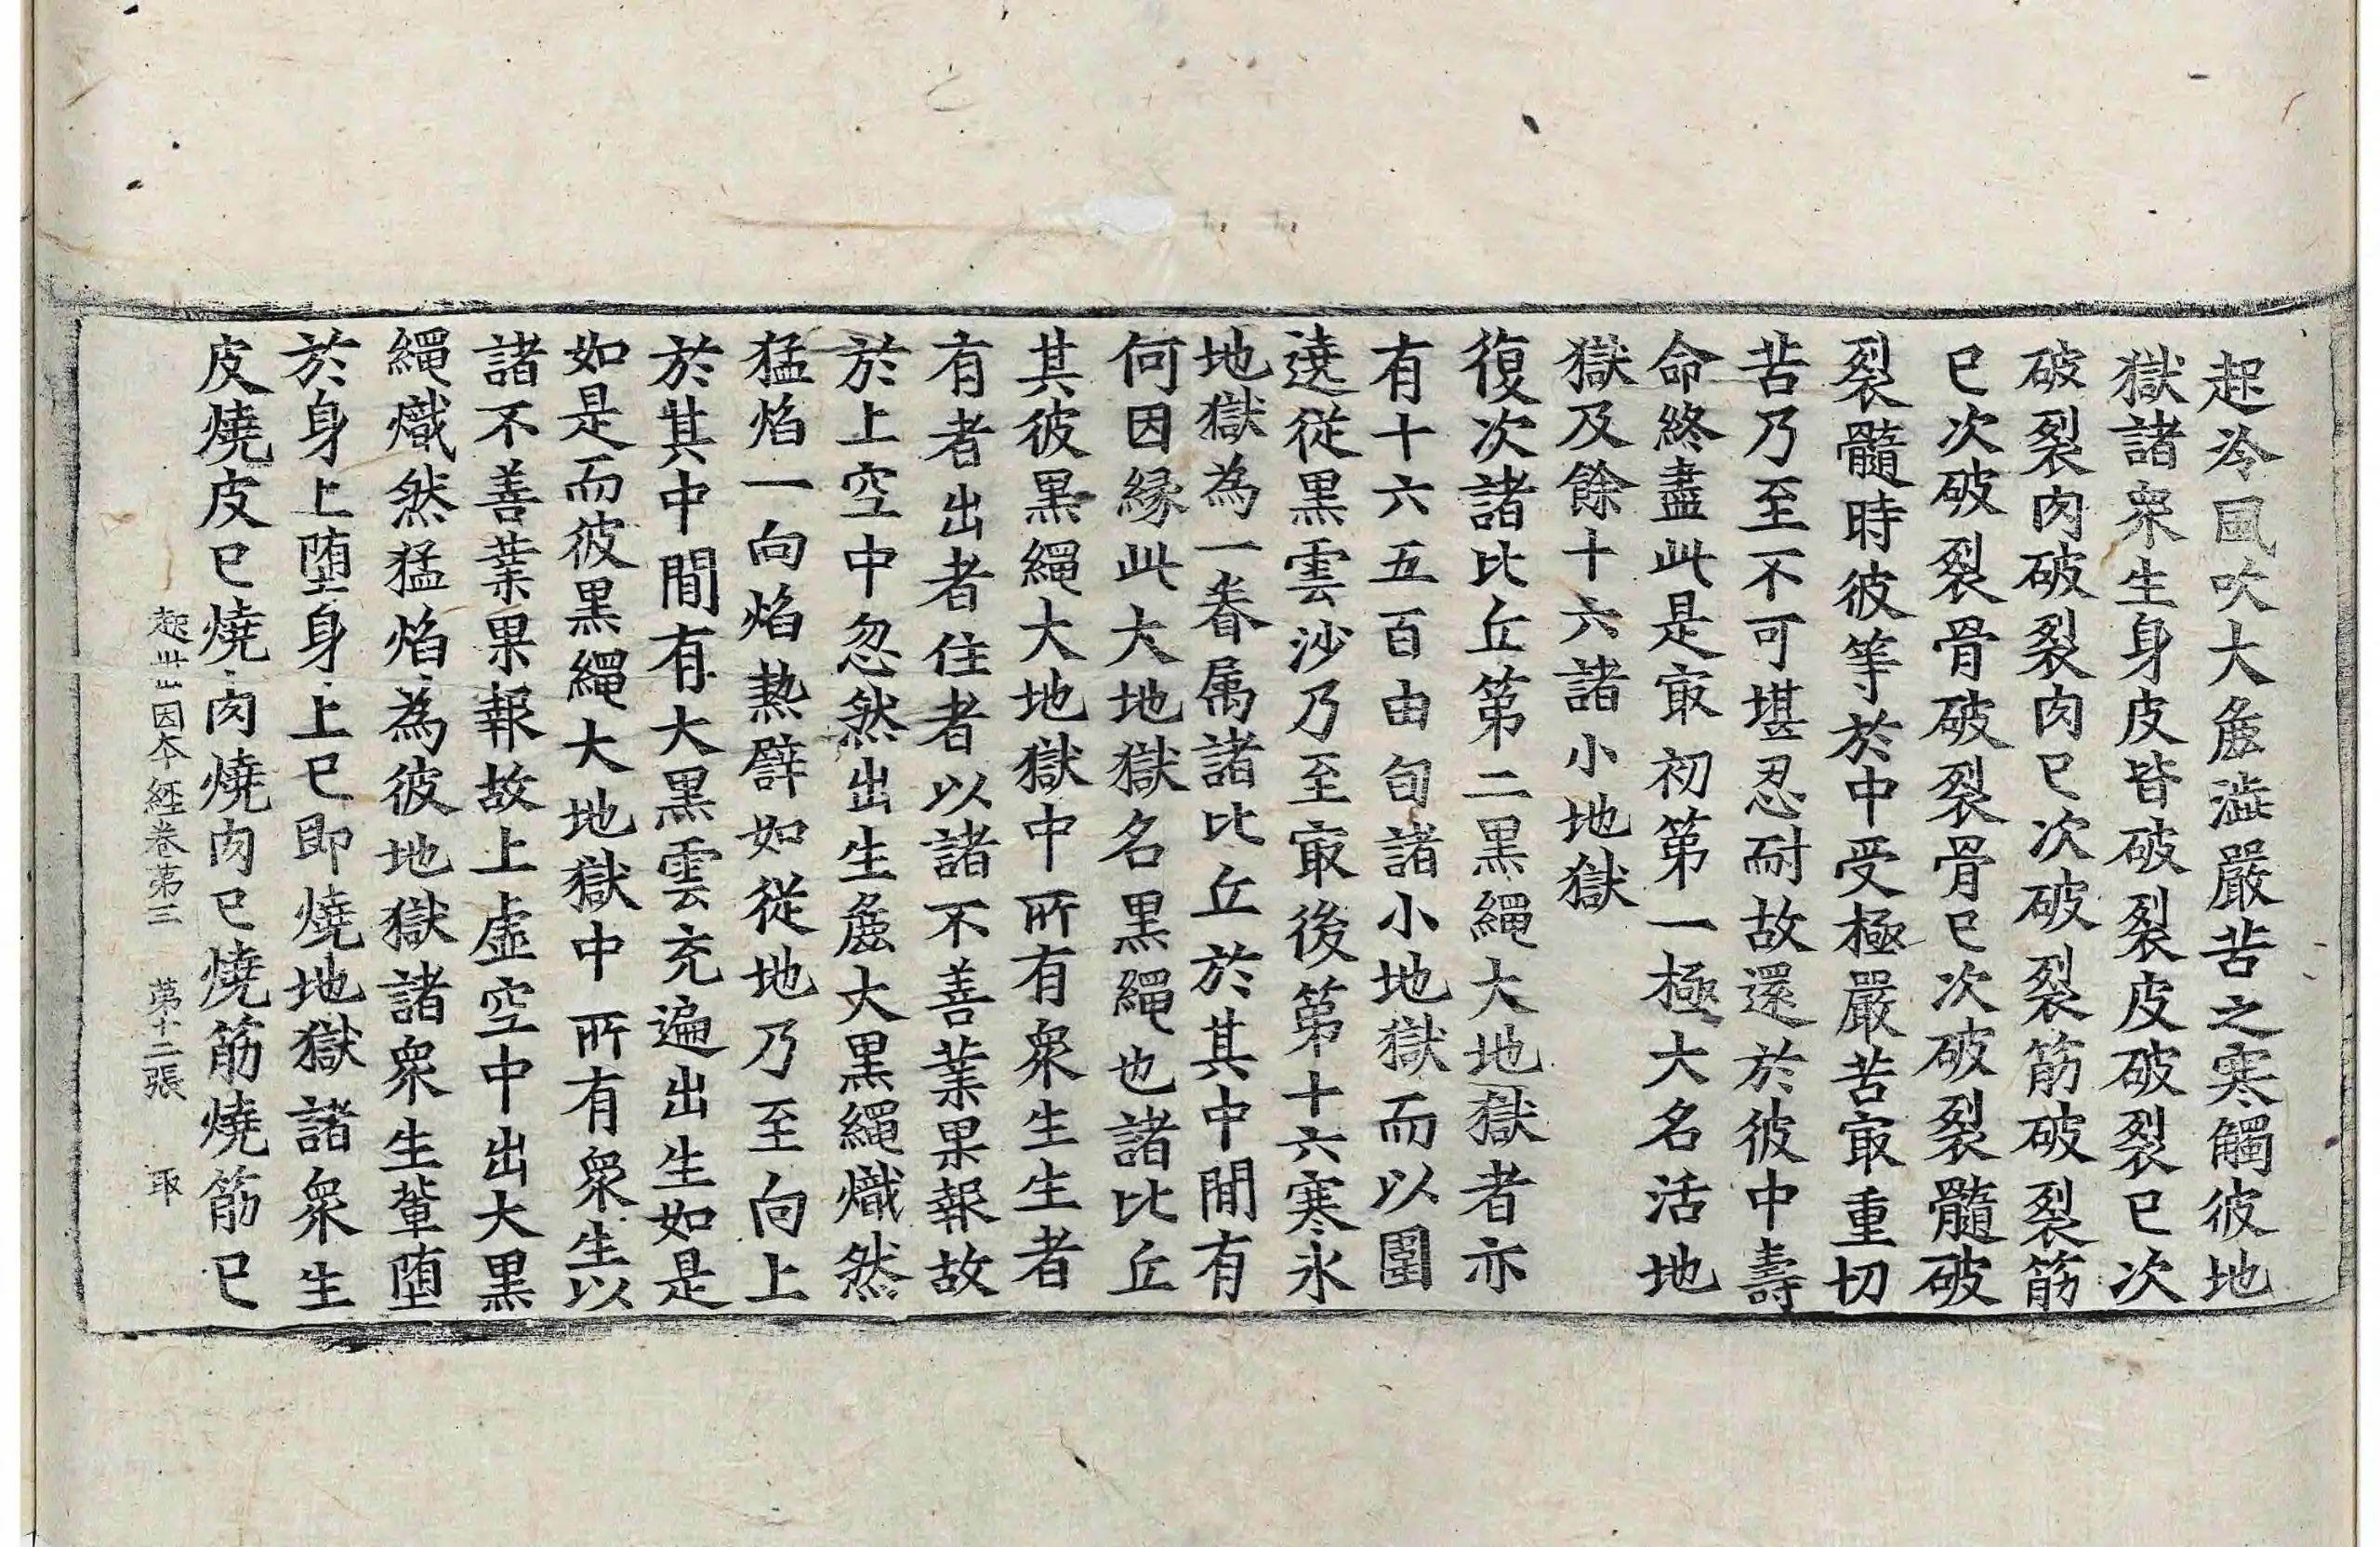 起冷風吹大麁澁嚴苦之寒觸彼地
獄諸衆生身皮皆破裂皮破裂已次
破裂肉破裂肉已次破裂筋破裂筋
已次破裂骨破裂骨已次破裂髓破
裂髓時彼等於中受極嚴苦㝡重切
苦乃至不可堪忍耐故還於彼中壽
命終盡此是㝡初第一極大名活地
獄及餘十六諸小地獄
復次諸比丘第二黒繩大地獄者亦
有十六五百由旬諸小地獄而以圍
遶從黒雲沙乃至㝡後第十六寒氷
地獄為一眷属諸比丘於其中間有
何因縁此大地獄名黒繩也諸比丘
其彼黒繩大地獄中所有衆生生者
有者出者住者以諸不善業果報故
於上空中忽然出生麁大黒繩熾然
猛焰一向焰熱譬如從地乃至向上
於其中間有大黒雲充遍出生如是
如是而彼黒繩大地獄中所有衆生以
諸不善業果報故上虚空中出大黒
繩熾然猛焰為彼地獄諸衆生輩堕
於身上堕身上已即燒地獄諸衆生
皮燒皮已燒肉燒肉已燒筋燒筋已
起丗因本經卷第三　第十二張　取